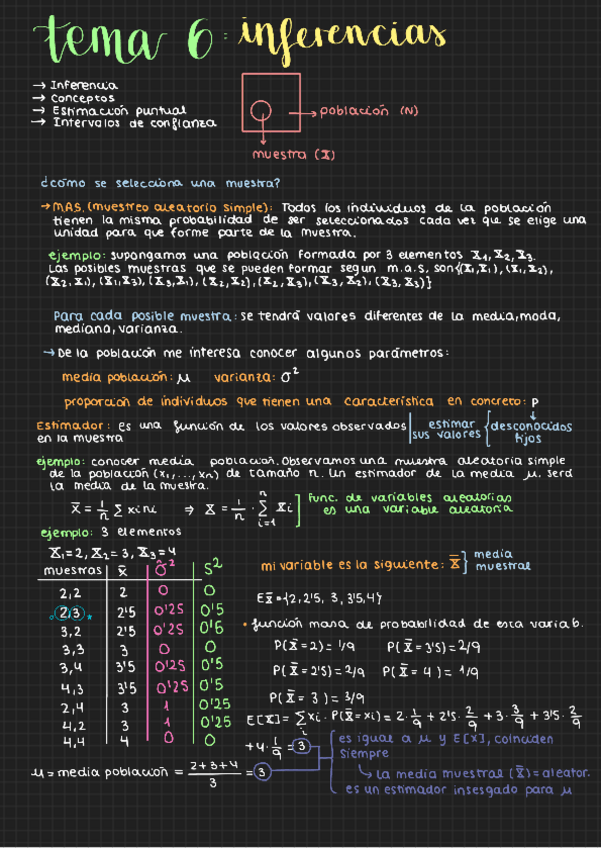 tema 6: inferencias
→ Inferencia
→ Conceptos
→ Estimación puntual
→ Intervalos de confianza
→ población (N)
muestra (X)
¿cómo se selecciona una muestra?
→ M.A.S. (muestreo aleatorio simple): Todos los individuos de la población
tienen la misma probabilidad de ser seleccionados cada vez que se elige una
unidad para que forme parte de la muestra.
ejemplo: supongamos una población formada por 3 elementos X₁, X₂, X₃.
Las posibles muestras que se pueden formar segun m.a.s, son {(X₁,X₁), (X₁,X₂),
(X₂,X₁), (X₁,X₃), (X₃,X₁), (X₂,X₂), (X₂,X₃), (X₃,X₂), (X₃,X₃)}
Para cada posible muestra: se tendrá valores diferentes de la media, moda,
mediana, varianza.
→ De la población me interesa conocer algunos parámetros:
media población: μ varianza: σ²
proporción de individuos que tienen una característica en concreto: p
Estimador: es una función de los valores observados
en la muestra
estimar
sus valores
desconocidos
fijos
ejemplo: conocer media población. Observamos una muestra aleatoria simple
de la población (x₁,...,xₙ) de tamaño n. Un estimador de la media μ. será
la media de la muestra.
x̄ = 1/n Σ xi ni ⇒ X̄ = 1/n · Σ Xi
n
i=1
Func. de variables aleatorias
es una variable aleatoria
ejemplo: 3 elementos
X₁=2, X₂=3, X₃=4
muestras | x̄ | σ̂² | S²
2,2 2 0 0
2,3 2'5 0'25 0'5
3,2 2'5 0'25 0'5
3,3 3 0 0
3,4 3'5 0'25 0'5
4,3 3'5 0'25 0'5
2,4 3 1 0'25
4,2 3 1 0'25
4,4 4 0 0
mi variable es la siguiente: X̄
media
muestral
EX̄={2, 2'5, 3, 3'5, 4}
• función masa de probabilidad de esta variab.
P(X̄=2)= 1/9 P(X̄=3'5)=2/9
P(X̄=2'5)=2/9 P(X̄=4)= 1/9
P(X̄=3)=3/9
E[X̄]= Σ xi · P(X̄=xi) = 2·1/9 + 2'5·2/9 + 3·3/9 + 3'5·2/9
i
+4·1/9 = 3
es igual a μ y E[X], coinciden
siempre
↳ la media muestral (X̄)= aleator.
es un estimador insesgado para μ
μ = media población = 2+3+4/3 = 3